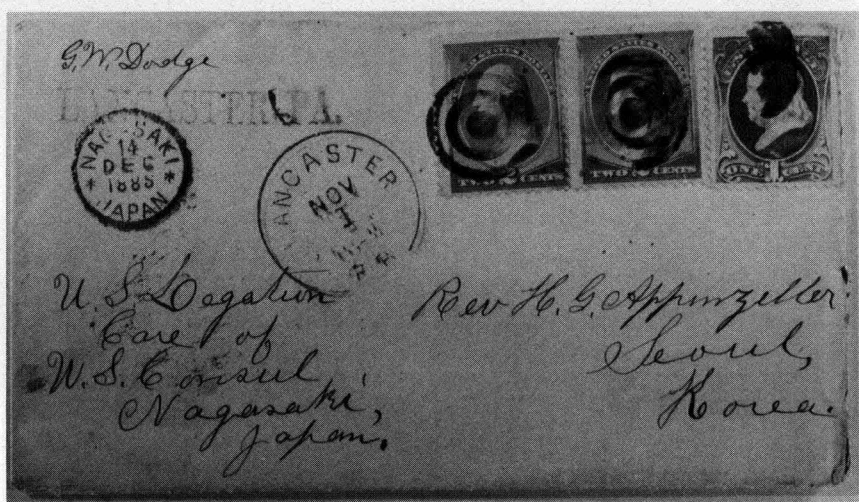 G. W. Dodge
LANCASTER, PA.
NAGASAKI
14
DEC
1885
JAPAN
LANCASTER
NOV
TWO 2 CENTS
TWO 2 CENTS
ONE 1 CENT
U. S. Legation
Care of
U. S. Consul
Nagasaki,
Japan.
Rev H. G. Appinzeller.
Seoul,
Korea.